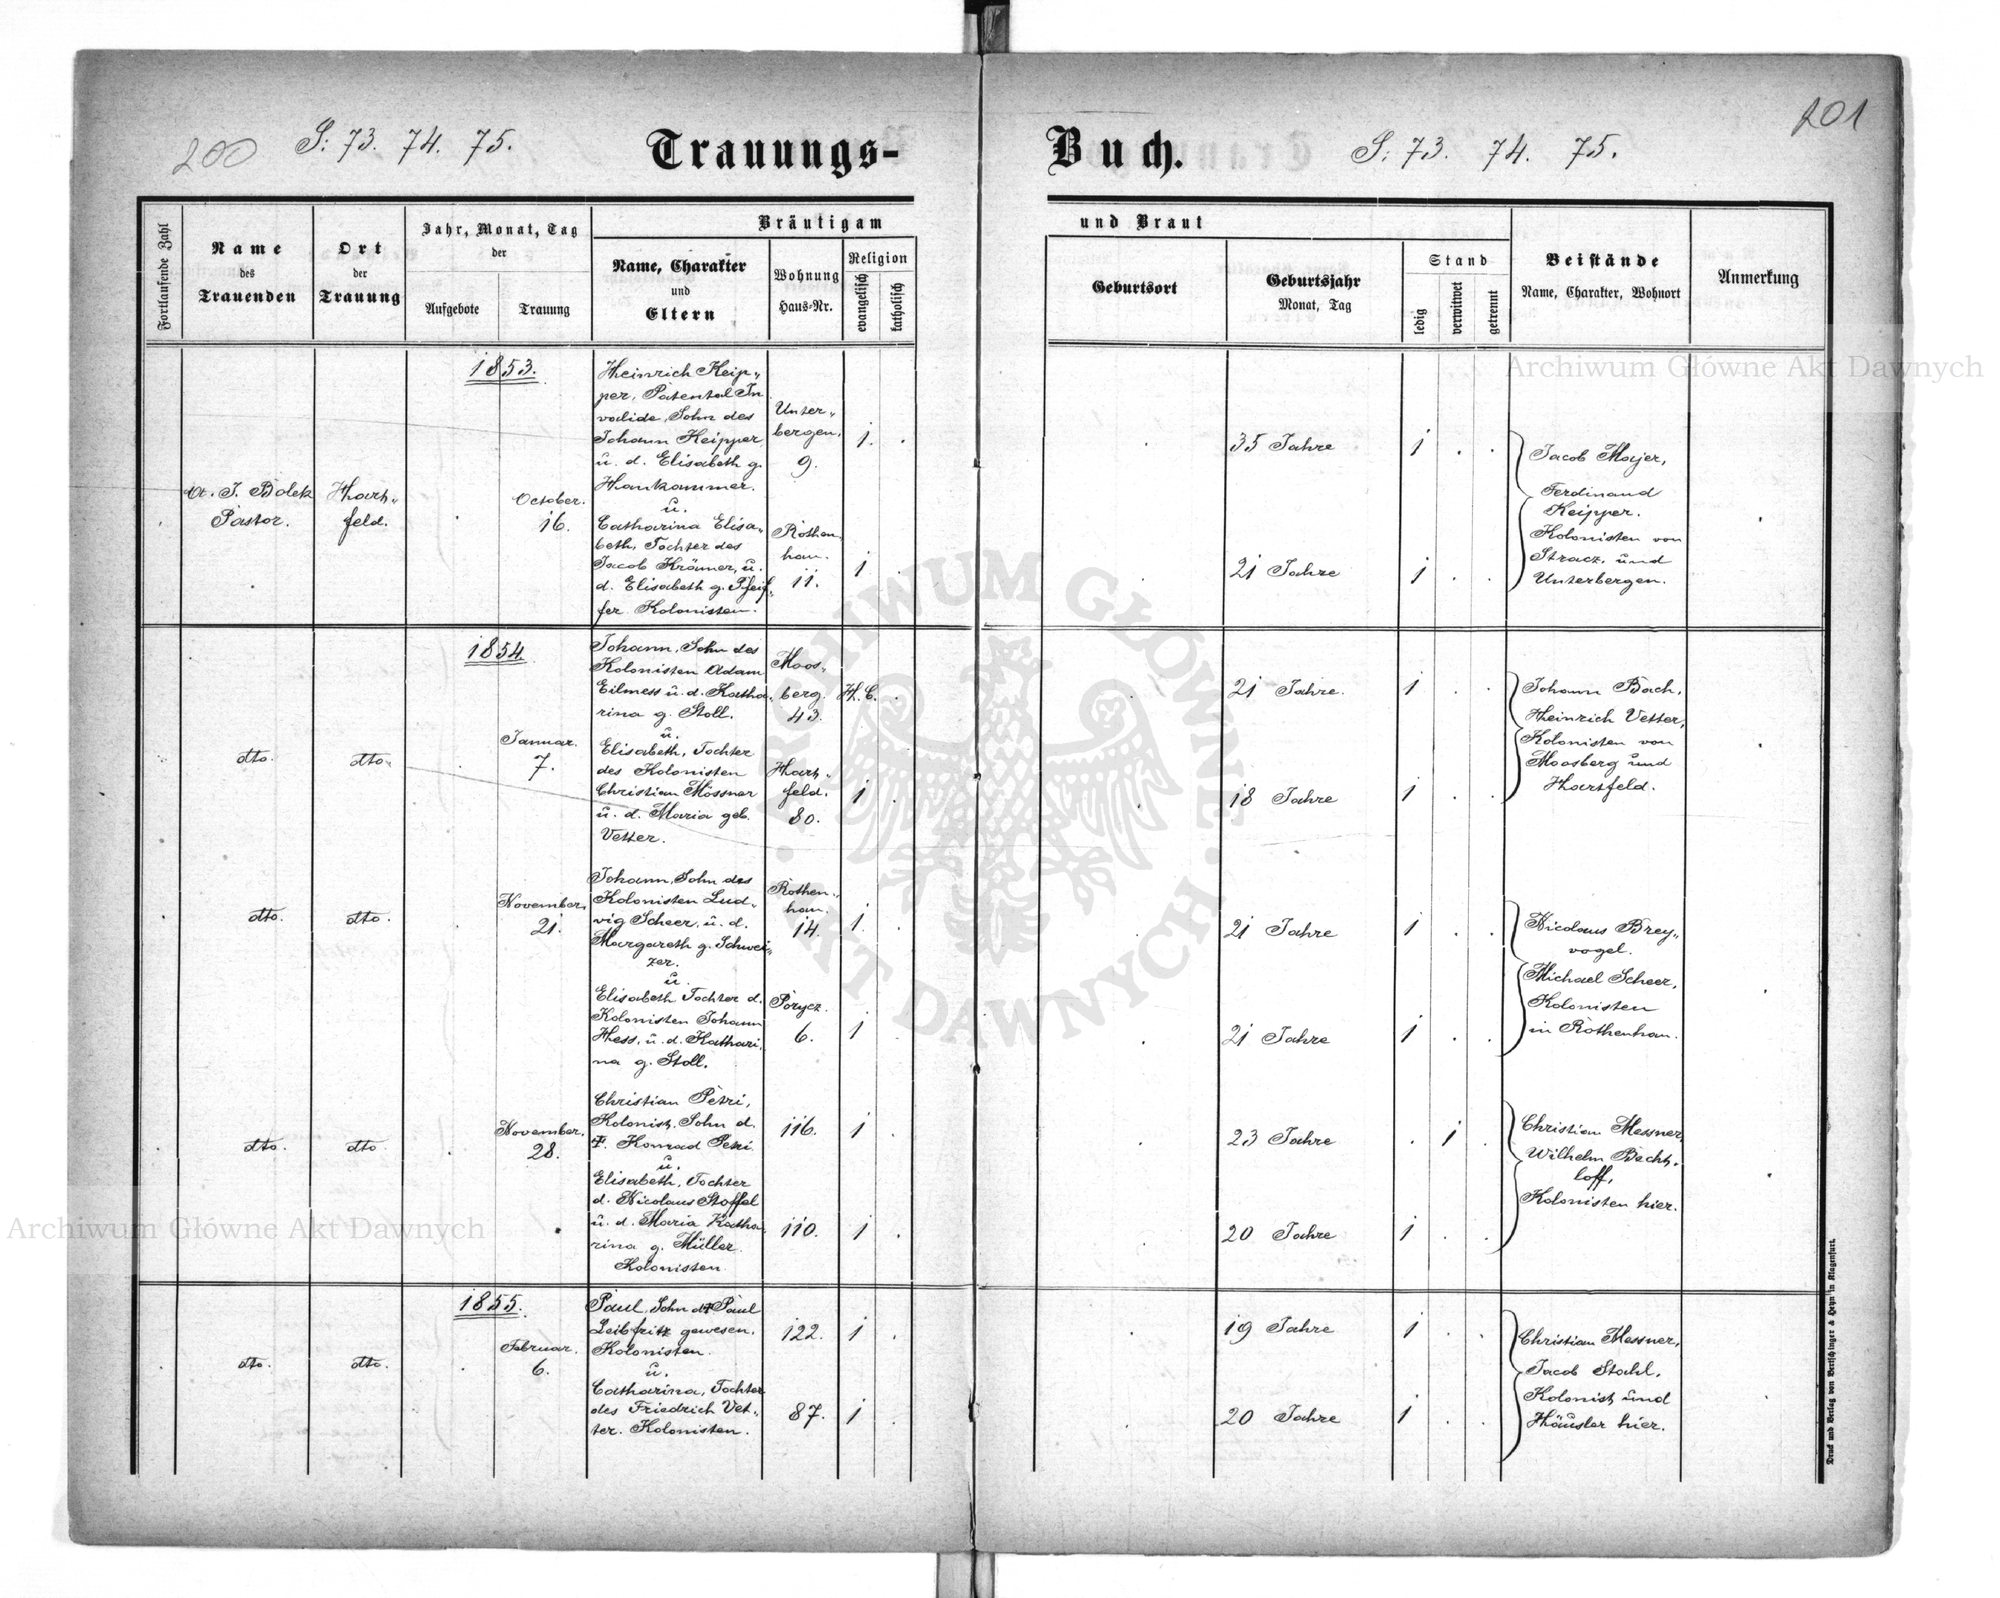 200 S: 73. 74. 75. Trauungs-
Fortlaufende Zahl
Name
des
Trauenden
Ort
der
Trauung
Jahr, Monat, Tag
der
Aufgebote
Trauung
Bräutigam
Name, Charakter
und
Eltern
Wohnung
Haus-Nr.
Religion
evangelisch
katholisch
1853.
J. Bolek
Pastor.
Hart„
feld.
October.
16.
Heinrich Keip„
per, Patental In
valide, Sohn des
Johann Keipper
u. d. Elisabeth g.
Hankammer.
u.
Catharina Elisa„
beth, Tochter des
Jacob Krämer, u.
d. Elisabeth g. Pfeif„
fer. Kolonisten.
Unter„
bergen,
9.
1.
Rothen„
han.
11.
1
1854.
dto.
dto.
Januar.
7.
Johann, Sohn des
Kolonisten Adam
Eilmess u. d. Katha„
rina g. Stoll.
u.
Elisabeth, Tochter
des Kolonisten
Christian Mössner
u. d. Maria geb.
Vetter.
Moos„
berg.
43.
H. C.
Hart„
feld.
80.
1
dto.
dto.
November.
21.
Johann, Sohn des
Kolonisten Lud„
vig Scheer, u. d.
Margareth g. Schwei„
zer.
u.
Elisabeth Tochter d.
Kolonisten Johann
Hess, u. d. Kathari„
na g. Stoll.
Rothen„
han.
14.
1.
Porycz.
6.
1
dto.
dto.
November.
28.
Christian Petri,
Kolonist, Sohn d.
Konrad Petri
u.
Elisabeth, Tochter
d. Nicolaus Stoffel
u. d. Maria Katha„
rina g. Müller.
Kolonisten.
116.
1
110.
1
1855.
dto.
dto.
Februar.
6.
Paul, Sohn d. Paul
Leibfritz gewesen.
Kolonisten.
u.
Catharina, Tochter
des Friedrich Vet„
ter. Kolonisten.
122.
1
87.
1
Buch. S: 73. 74. 75. 201
und Braut
Geburtsort
Geburtsjahr
Monat, Tag
Stand
ledig
verwitwet
getrennt
Beistände
Name, Charakter, Wohnort
Anmerkung
35 Jahre 1
21 Jahre 1
Jacob Majer,
Ferdinand
Keipper.
Kolonisten von
Stracz, und
Unterbergen.
21 Jahre. 1
18 Jahre 1
Johann Bach,
Heinrich Vetter,
Kolonisten von
Moosberg und
Hartfeld.
21 Jahre 1
21 Jahre 1
Nicolaus Brey„
vogel.
Michael Scheer,
Kolonisten
in Rothenhan.
23 Jahre 1
20 Jahre 1
Christian Messner,
Wilhelm Becht„
loff,
Kolonisten hier.
19 Jahre 1
20 Jahre 1
Christian Messner,
Jacob Stahl,
Kolonist und
Häusler hier.
Druck und Verlag von Bertschinger & Heyn in Klagenfurt.
Archiwum Główne Akt Dawnych
Archiwum Główne Akt Dawnych
ARCHIWUM GŁÓWNE
AKT DAWNYCH